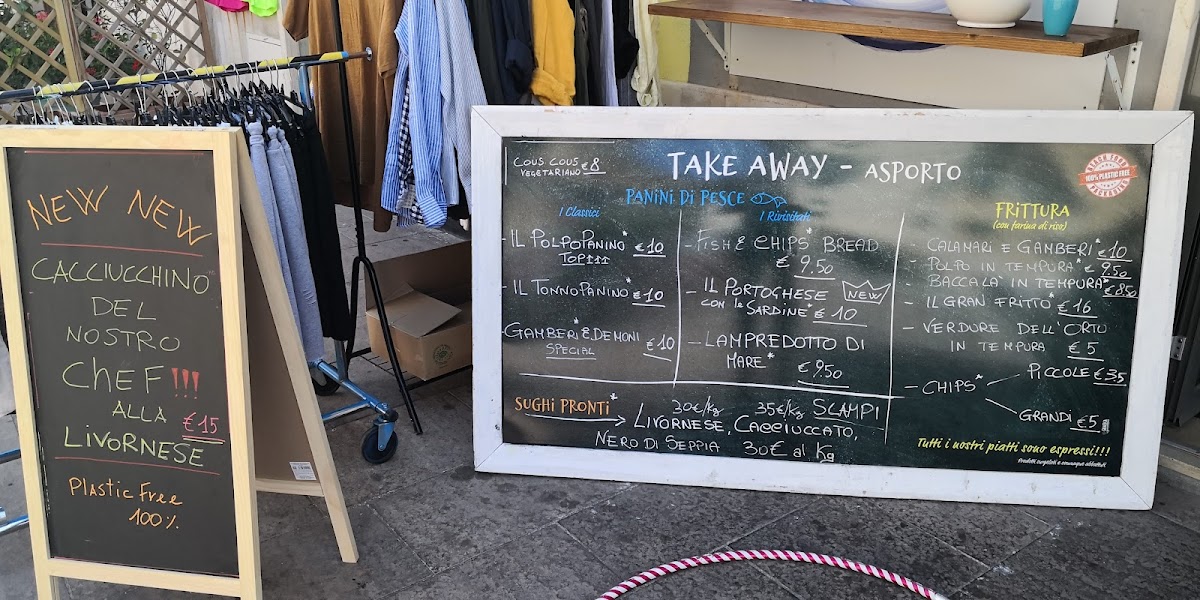 NEW NEW
CACCIUCCHINO
DEL
NOSTRO
CHEF!!!
ALLA
€15
LIVORNESE
Plastic Free
100%
COUS COUS €8
VEGETARIANO
TAKE AWAY - ASPORTO
100% PLASTIC FREE
PANINI DI PESCE
I Classici
IL POLPOPANINO* €10
TOP111
- IL TONNOPANINO* €10
GAMBERI* & DEMONI €10
SPECIAL
I Rivisitati
- FISH & CHIPS* BREAD
€ 9.50
- IL PORTOGHESE NEW
CON le SARDINE* € 10
- LAMPREDOTTO DI
MARE* € 9,50
FRITTURA
(con farina di riso)
- CALAMARI E GAMBERI* €10
- POLPO IN TEMPURA* € 9,50
- BACCALA' IN TEMPURA* €8,50
- IL GRAN FRITTO* € 16
- VERDURE DELL'ORTO
IN TEMPURA € 5
- CHIPS*
PICCOLE €3,5
GRANDI €5
SUGHI PRONTI*
30€/Kg 35€/Kg SCAMPI
LIVORNESE, CACCIUCCATO,
NERO DI SEPPIA 30€ al Kg
Tutti i nostri piatti sono espressi!!!
Prodotti surgelati o comunque abbattuti